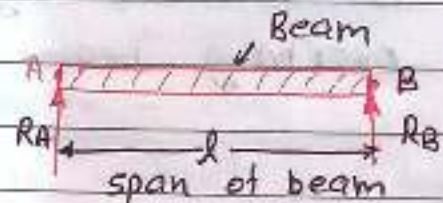 Beam
A B
RA l RB
span of beam